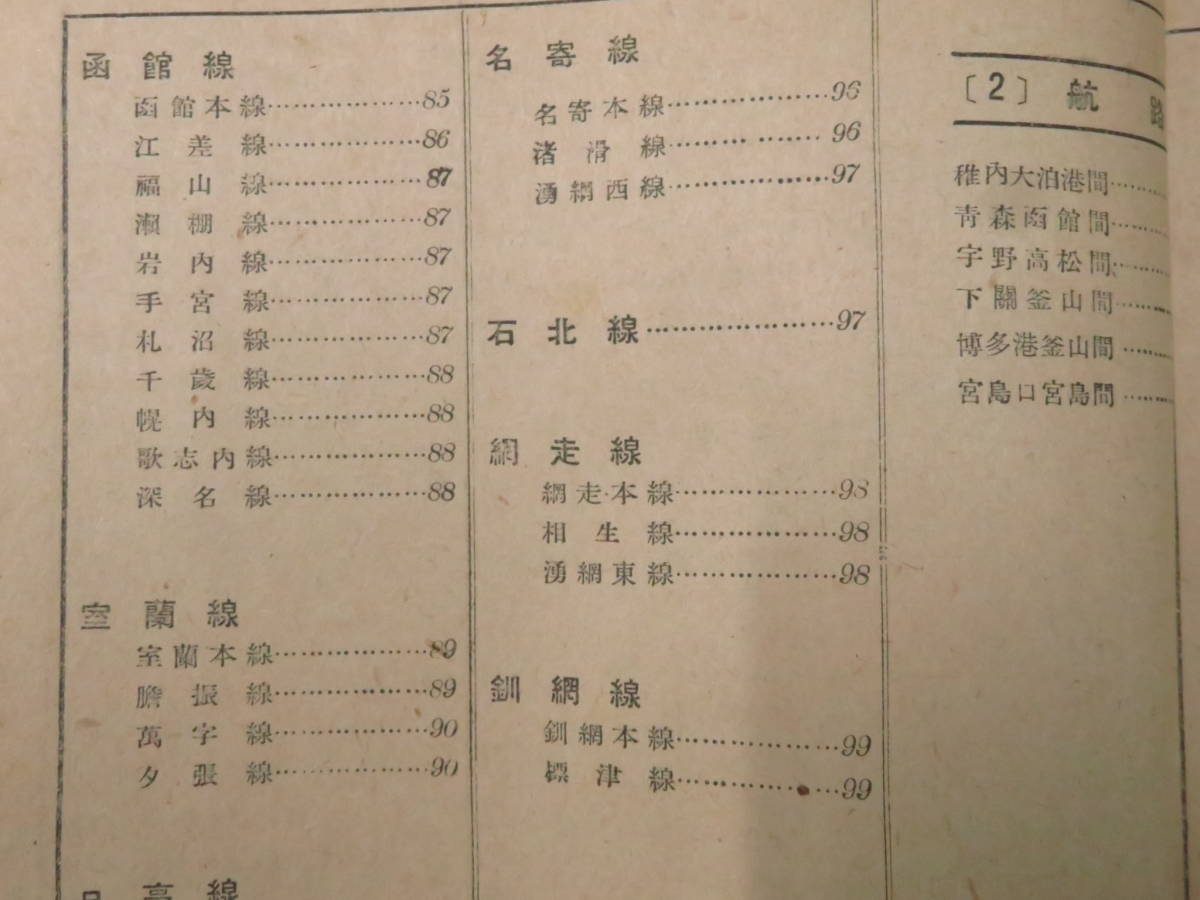 函館線
函館本線………………85
江差線………………86
福山線………………87
瀬棚線………………87
岩内線………………87
手宮線………………87
札沼線………………87
千歳線………………88
幌内線………………88
歌志内線………………88
深名線………………88
室蘭線
室蘭本線………………89
膽振線………………89
萬字線………………90
夕張線………………90
高線
名寄線
名寄本線………………96
渚滑線………………96
湧網西線………………97
石北線…………………97
網走線
網走本線………………98
相生線………………98
湧網東線………………98
釧網線
釧網本線………………99
標津線………………99
〔2〕航路
稚內大泊港間………
靑森函館間………
宇野高松間………
下關釜山間………
博多港釜山間………
宮島口宮島間………